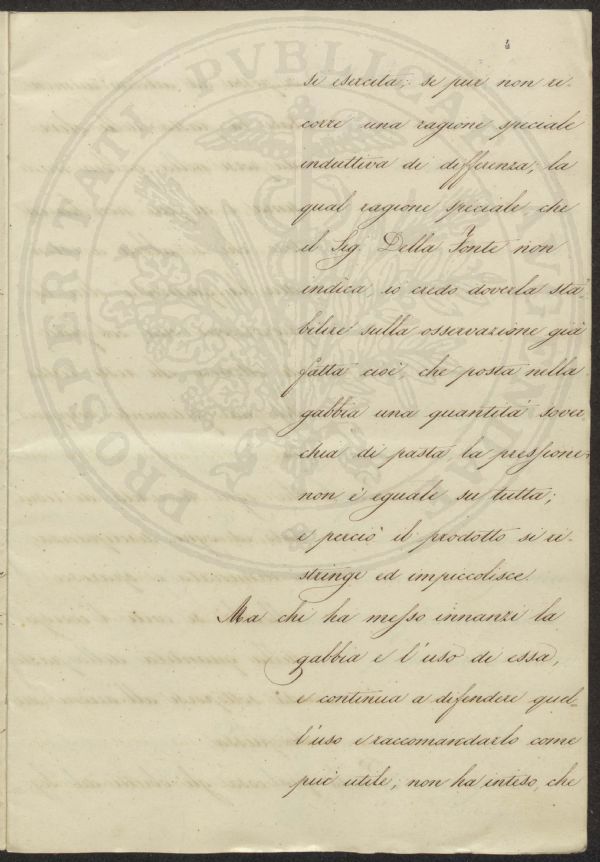 si esercita; se pur non ri-
corre una ragione speciale
induttiva di differenza; la
qual ragione speciale, che
il Sig. Della Fonte non
indica, io credo doverla sta-
bilire sulla osservazione già
fatta cioè, che posta nella
gabbia una quantità sover
chia di pasta, la pressione
non è eguale su tutta;
e perciò il prodotto si ri-
stringe ed impiccolisce.
Ma chi ha messo innanzi la
gabbia e l'uso di essa,
e continua a difendere quel-
l'uso e raccomandarlo come
più utile, non ha inteso, che
PROSPERITATI PVBLICAE AVGENDAE